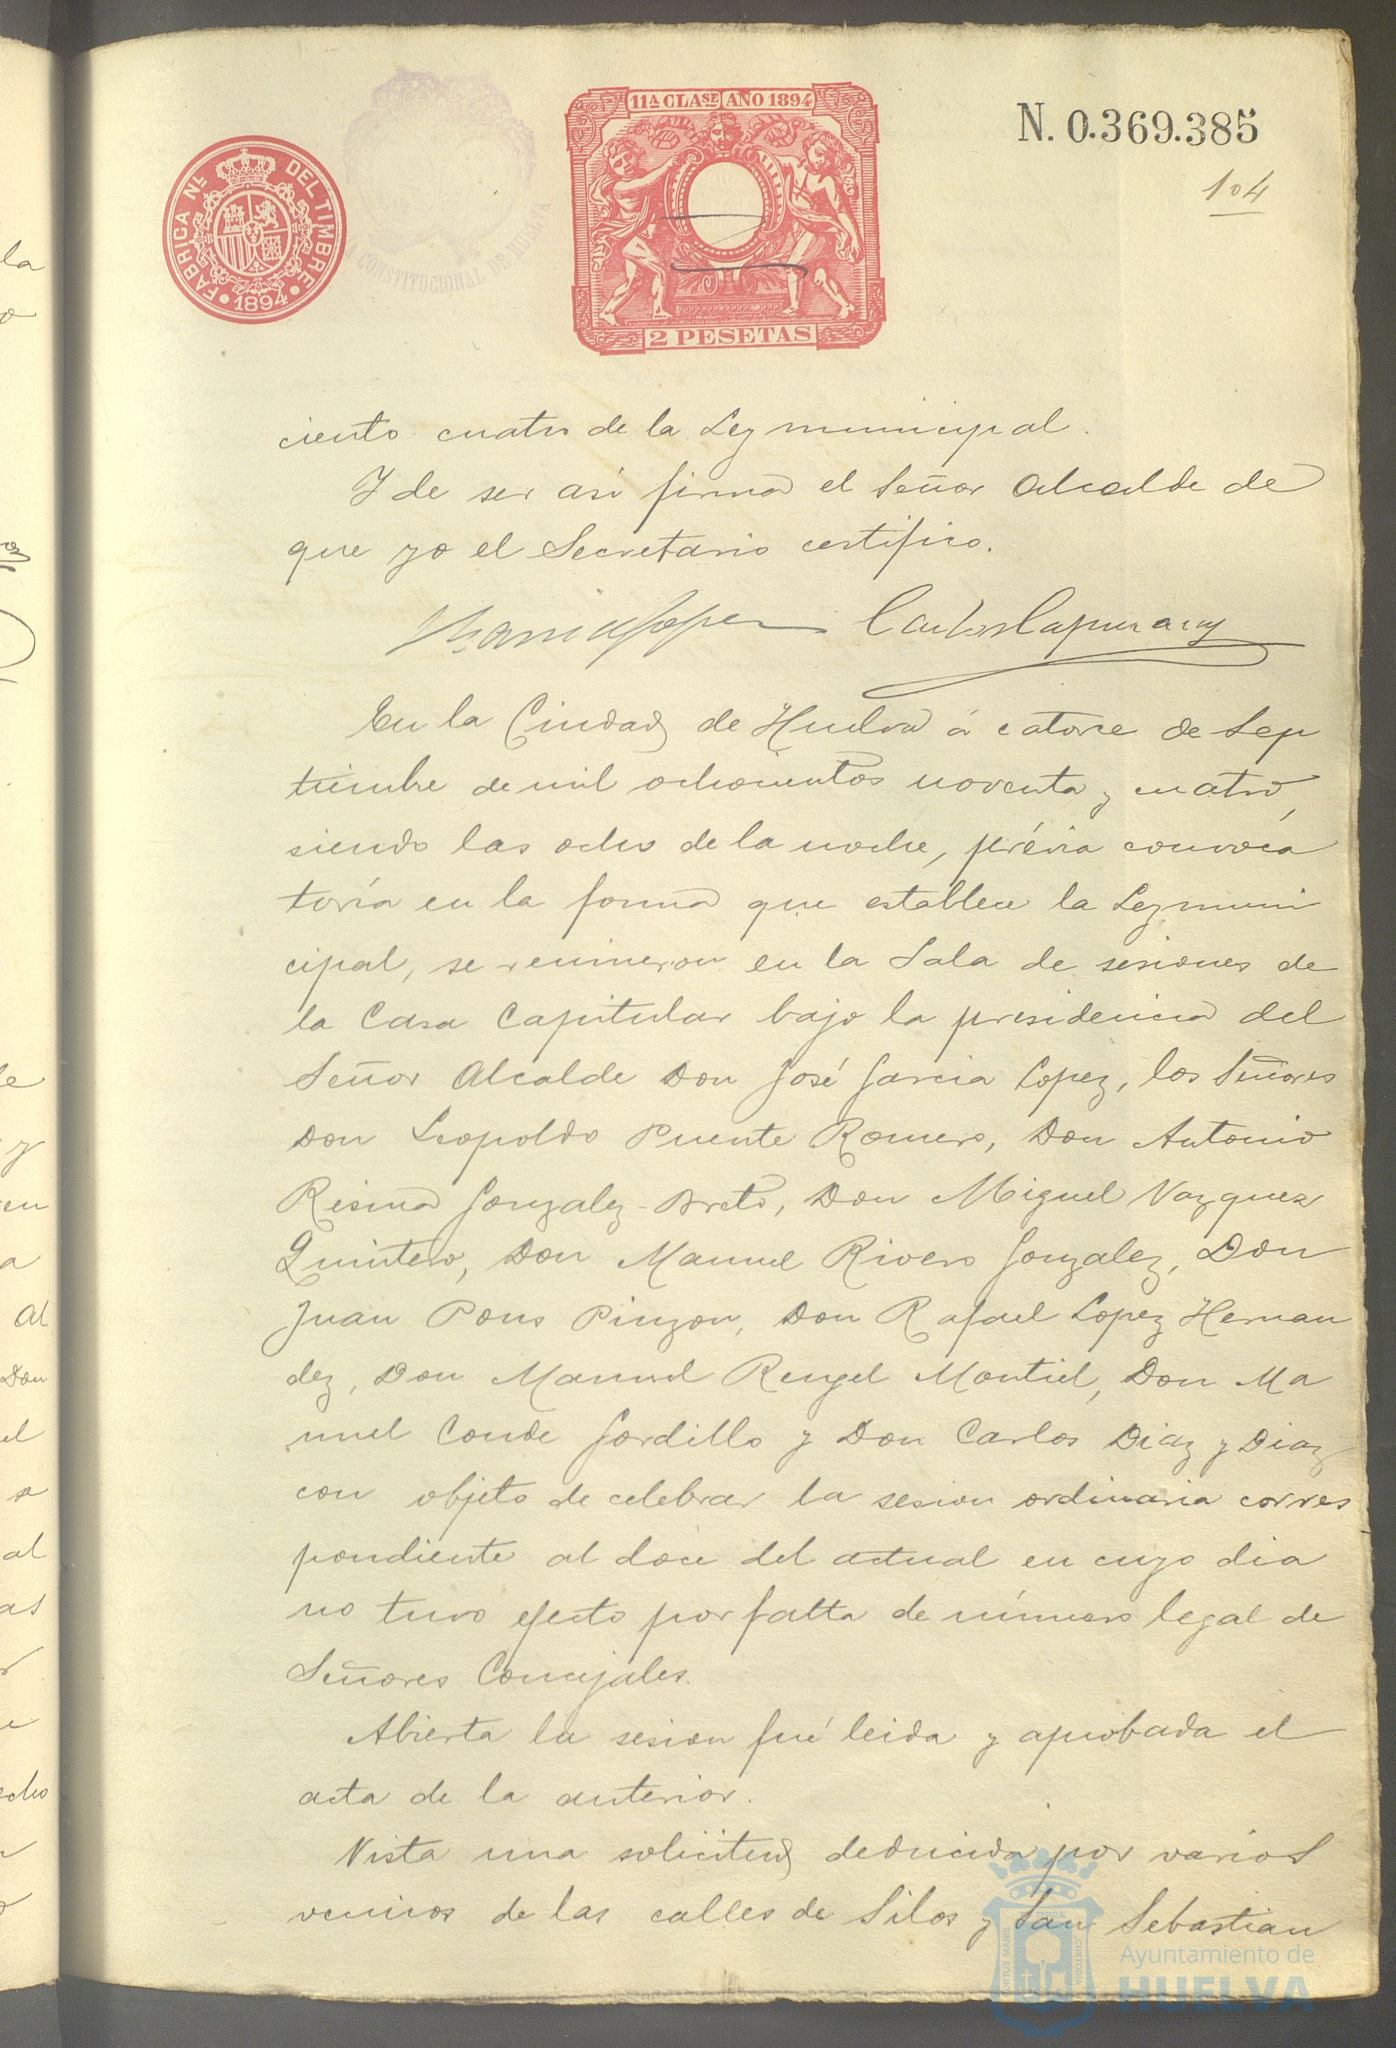 11ª CLASE AÑO 1894
N. 0.369.385
104
FABRICA NL. DEL TIMBRE
1894
CONSTITUCIONAL DE HUELVA
2 PESETAS
ciento cuatro de la Ley municipal.
Y de ser asi firma el Señor Alcalde de
que yo el Secretario certifico.
Garcia Lopez Carlos
En la Ciudad de Huelva á catorce de Sep
tiembre de mil ochocientos noventa y cuatro,
siendo las ocho de la noche, prévia convoca
toría en la forma que establece la Ley muni
cipal, se reunieron en la Sala de sesiones de
la Casa Capitular bajo la presidencia del
Señor Alcalde Don José Garcia Lopez, los Señores
Don Leopoldo Puente Romero, Don Antonio
Resina Gonzalez-Breto, Don Miguel Vazquez
Quintero, Don Manuel Rivero Gonzalez, Don
Juan Pons Pinzon, Don Rafael Lopez Hernan
dez, Don Manuel Rengel Montiel, Don Ma
nuel Conde Gordillo y Don Carlos Diaz y Diaz
con objeto de celebrar la sesion ordinaria corres
pondiente al doce del actual en cuyo dia
no tuvo efecto por falta de número legal de
Señores Concejales.
Abierta la sesion fué leida y aprobada el
acta de la anterior.
Vista una solicitud deducida por varios
vecinos de las calles de Silos y San Sebastian
Ayuntamiento de
HUELVA